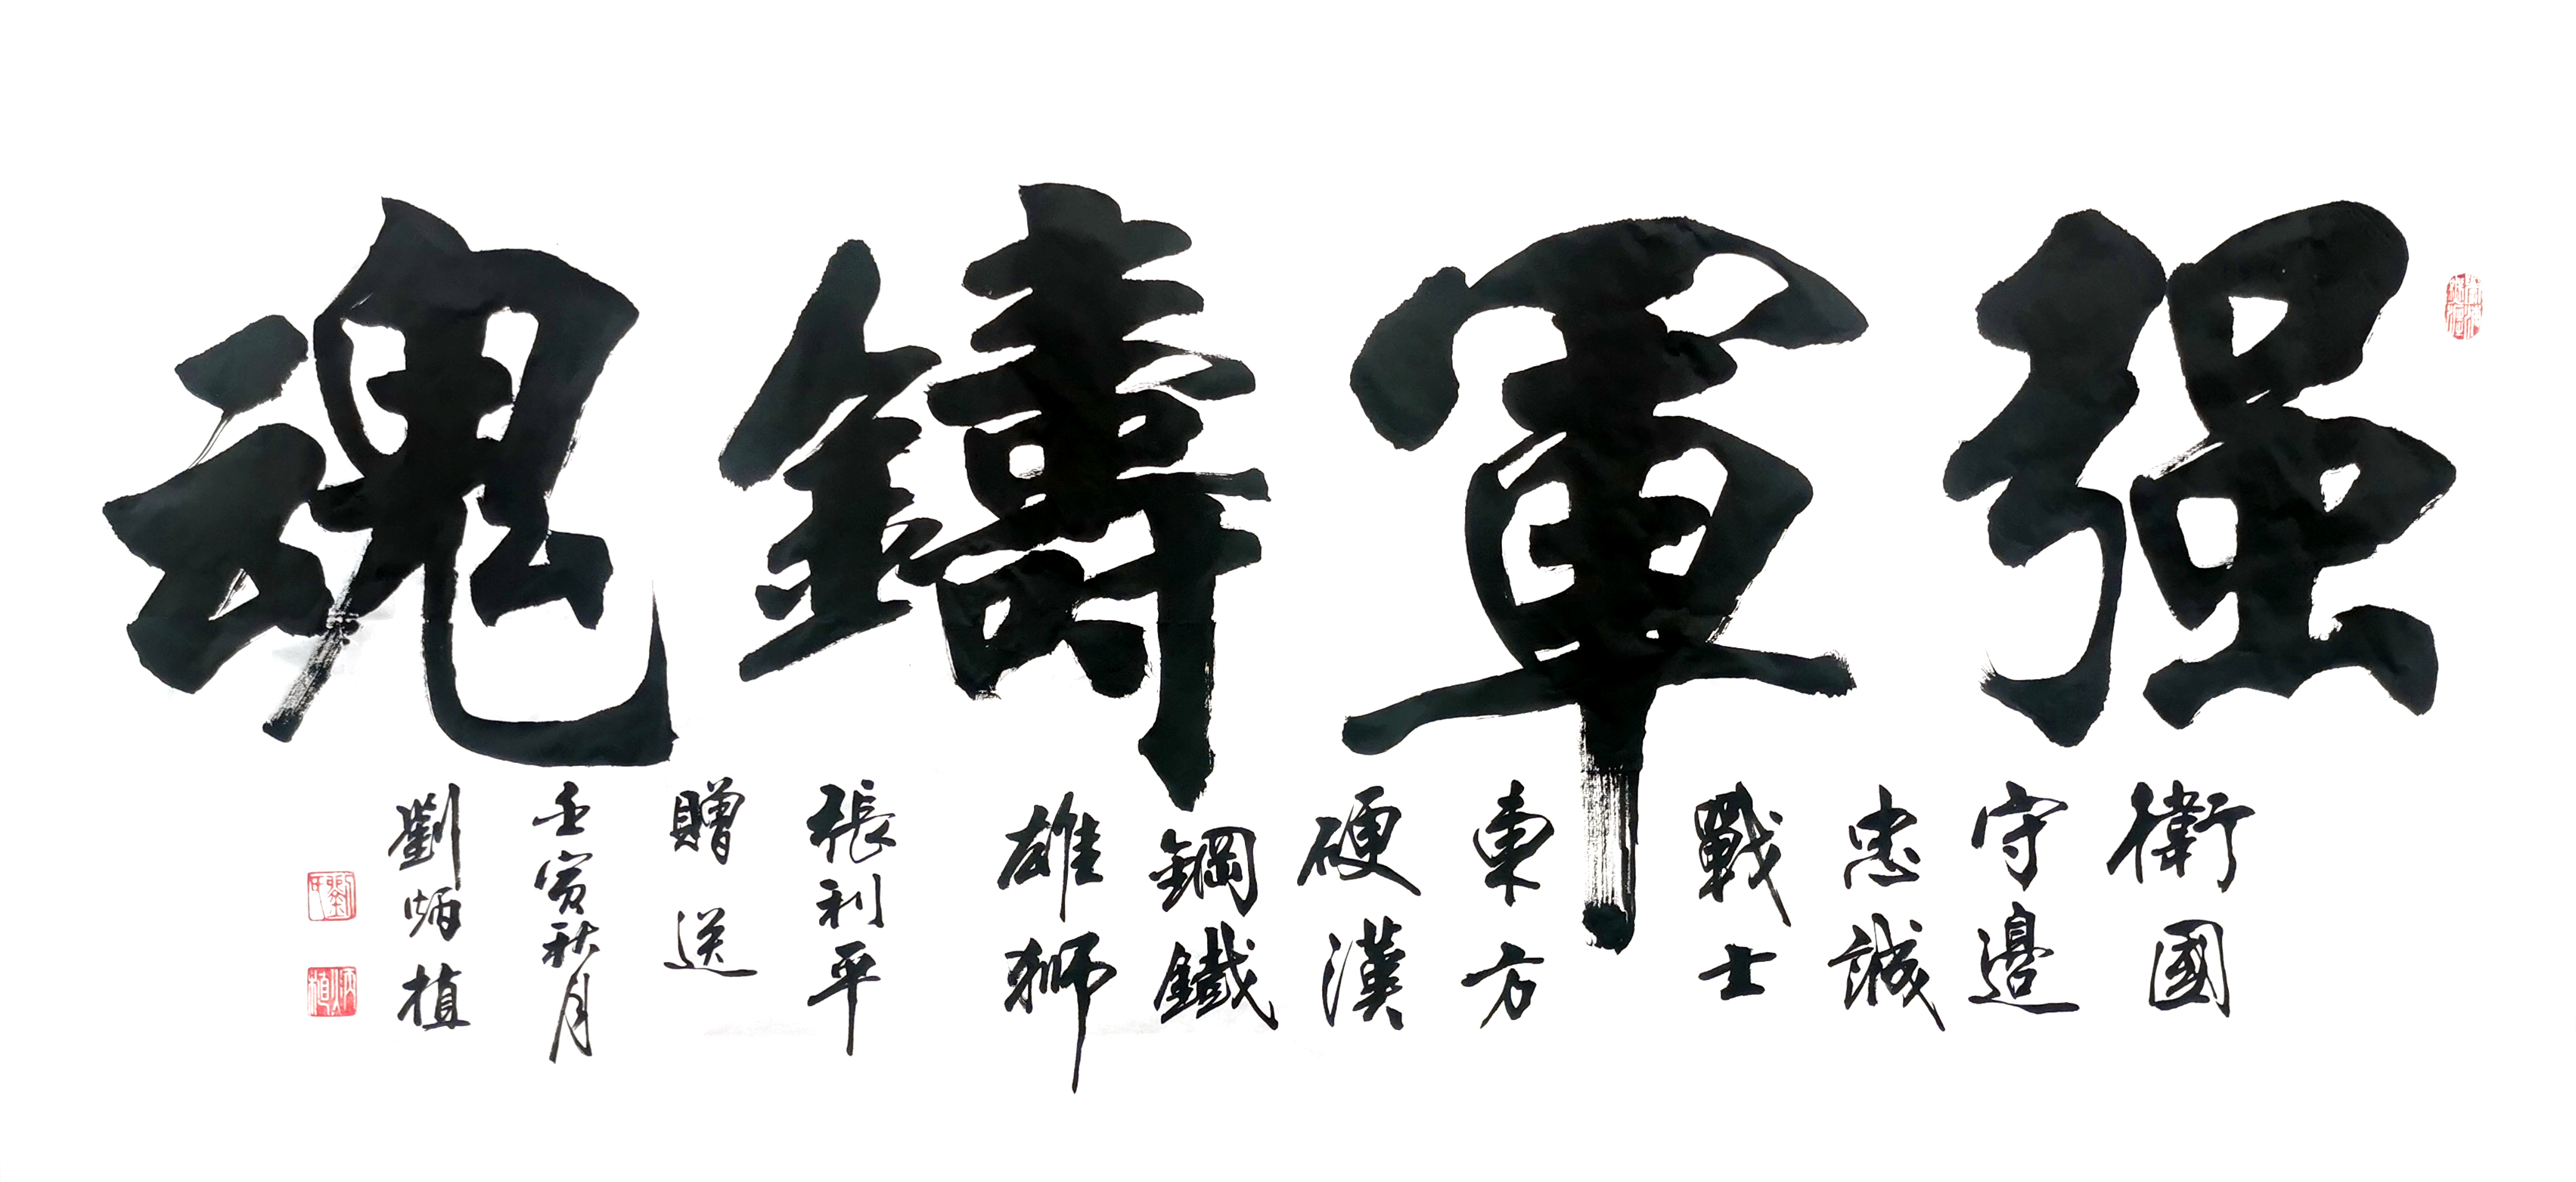 强軍鑄魂
衛國
守邊
忠誠
戰士
東方
硬漢
鋼鐵
雄獅
張利平
贈送
壬寅秋月
劉炳植
劉氏
炳植